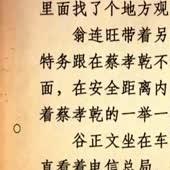 里面找了个地方观
翁连旺带着另
特务跟在蔡孝乾不
面，在安全距离内
着蔡孝乾的一举一
谷正文坐在车
直看着电信总局